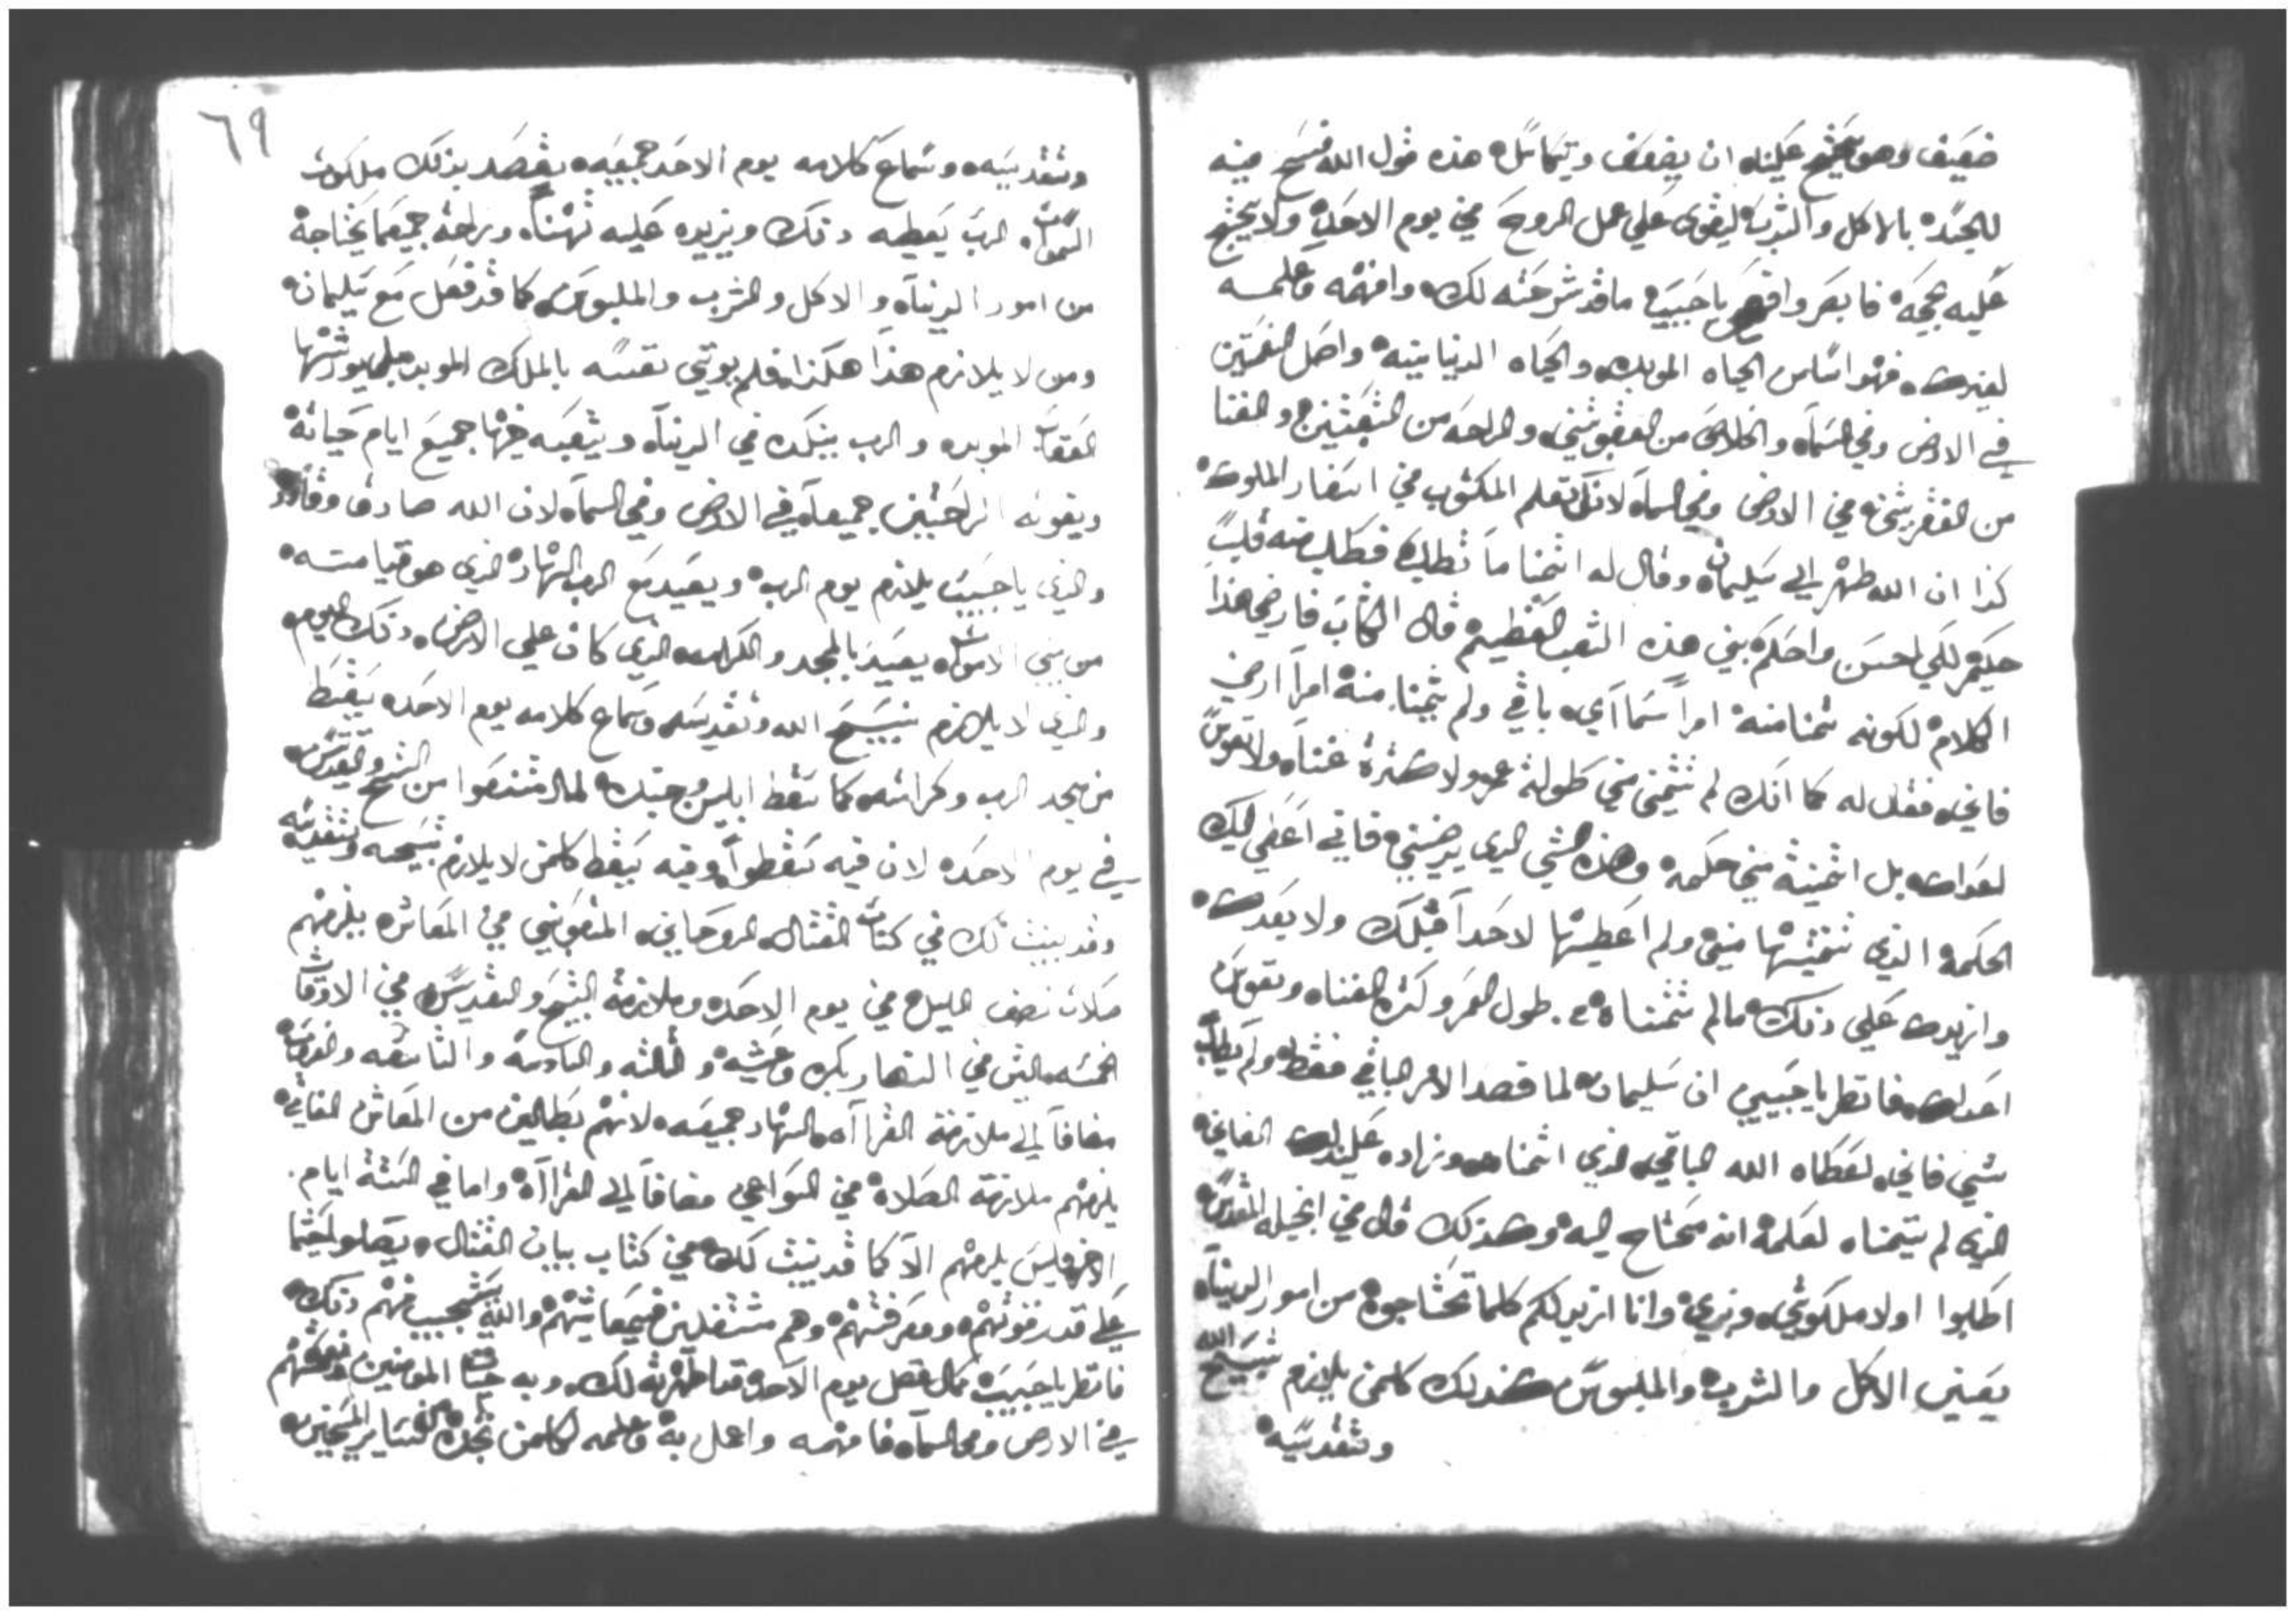 ضعيف وهو يحتج علينا ان يضعف ويتكاسل هذه قول الله فسح فيه
للجسد بالاكل والشرب ليقوى على عمل الروح في يوم الاحد ولا يحتج
عليه بحجه فابصر وافهم يا حبيبي ما قد شرحته لك وافهمه وعلمه
لغيرك فهو اساس الحياه الموبده والحياه الدنيانيه واصل النعمتين
في الارض وفي السماء والخلاص من العقوبتين والراحه من التعبتين والغنا
من الفقر في الارض وفي السماء لانك تعلم المكتوب في اسفار الملوك
كذا ان الله ظهر الي سليمان وقال له اتمنا ما تطلب فطلب منه قلب
حكيم لكي احسن واحكم بين هذه الشعب العظيم قال الكتاب فارضي هذا
الكلام لكونه تمنا منه امرا سمااي باقي ولم يتمنا منه امرا ارضي
فاني فقال له كما انك لم تتمني مني طولة عمر ولا كثرة غنا ولا نفوس
اعداك بل اتمنيت مني حكمه وهذه الشي الذي يرضيني فاني اعطي لك
الحكمه الذي تمنيتها مني ولم اعطيها لاحدا قبلك ولا بعدك
وازيدك علي ذلك مالم تتمناه طول العمر وكثرة الغناه ونفوس
اعداك فانظر يا حبيبي ان سليمان لما قصد الامر الباقي فقط ولم يطلب
شي فاني اعطاه الله الباقي الذي اتمناه وزاده عليه الفاني
الذي لم يتمناه لعلمه انه محتاج اليه وكذلك قال في انجيله المقدس
اطلبوا اولا ملكوتي وبري وانا ازيد لكم كلما تحتاجوه من امور الدنياه
يعني الاكل والشرب والملبوس كذلك كلمن يلازم تسبيح الله
وتقديسه
٦٩
وتقديسه وسماع كلامه يوم الاحد جميعه يقصد بذلك ملكوت
السموات الرب يعطيه ذلك ويزيده عليه وراحة جميع ما يحتاجه
من امور الدنياه والاكل والشرب والملبوس كما قد فعل مع سليمان
ومن لا يلازم هذا هكذا فلم يوتي نفسه بالملك الموبد بلي يورثها
العقاب الموبده والرب ينكده في الدنيا ويتعبه فيها جميع ايام حياته
ويفوته الراحتين جميعا في الارض وفي السماء لان الله صادق
والذي يا حبيبي يلازم يوم الرب ويعيد مع الرب النهار الذي هو قيامته
من بين الاموات يعيد بالمجد والكرامه الذي كان علي الارض ذلك اليوم
والذي لا يلازم تسبيح الله وتقديسه وسماع كلامه يوم الاحد يسقط
من مجد الرب وكرامته كما سقط ابليس وجنده لما امتنعوا من التسبيح والتقديس
في يوم الاحد لان فيه سقطوا وفيه يسقط كلمن لا يلازم تسبيحه وتقديسه
وقد بينت لك في كتاب القتال الروحاني في المعاش يلزمهم
صلاة نصف الليل في يوم الاحد وملازمة التسبيح والتقديس في الاوقات
الخمسه التي في النهار بكره وعشيه والثالثه والسادسه والتاسعه
مضافا الي ملازمة القراآه النهار جميعه لانهم بطالين من المعاش الفاني
يلزمهم ملازمة الصلاه في السواعي مضافا الي القراآه واما في الستة ايام
الاخر فليس يلزمهم الا كما قد بينت لك في كتاب بيان القتال
علي قدر قوتهم ومعرفتهم وهم مشتغلين في معايشهم والله يستجيب منهم ذلك
فانظر يا حبيبي كمال فضل يوم الاحد قد اظهرته لك وبه المومنين
في الارض وفي السماء فافهمه واعمل به وعلمه لكلمن تجده المسيحيين